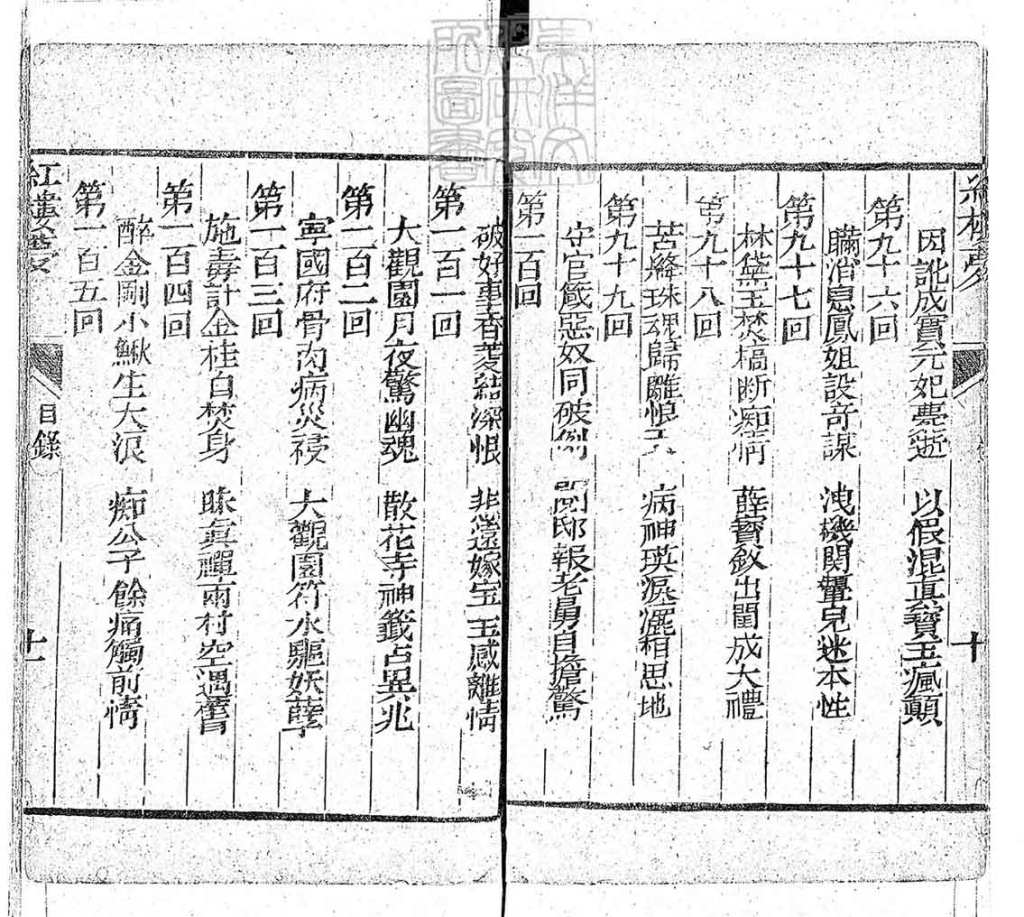 紅樓夢
十
因訛成實元妃薨逝 以假混真寶玉瘋顛
第九十六回
瞞消息鳳姐設奇謀 洩機関顰兒迷本性
第九十七回
林黛玉焚槁断痴情 薛寶釵出閨成大禮
第九十八回
苦絳珠魂歸離恨天 病神瑛淚灑相思地
第九十九回
守官箴惡奴同破例 閱邸報老舅自擔驚
第一百回
破好事香菱結深恨 悲遠嫁宝玉感離情
第一百一回
大觀園月夜驚幽魂 散花寺神籤占異兆
第一百二回
寧國府骨肉病災祲 大觀園符水驅妖孽
第一百三回
施毒計金桂自焚身 昧真禪雨村空遇舊
第一百四回
醉金剛小鰍生大浪 痴公子餘痛觸前情
第一百五回
紅樓夢
目錄
十一
東洋文
化研究
所圖書